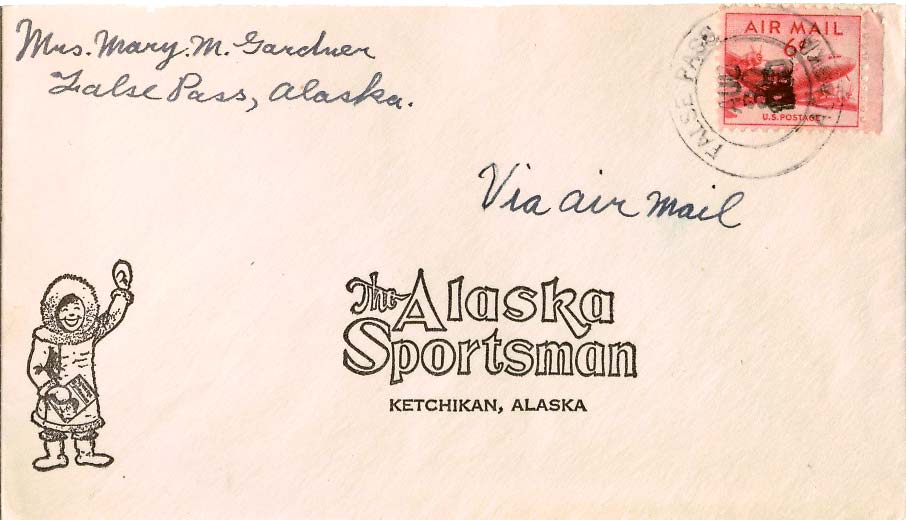 Mrs. Mary M. Gardner
False Pass, Alaska.
AIR MAIL
6¢
U.S. POSTAGE
FALSE PASS
Via air mail
The Alaska
Sportsman
KETCHIKAN, ALASKA